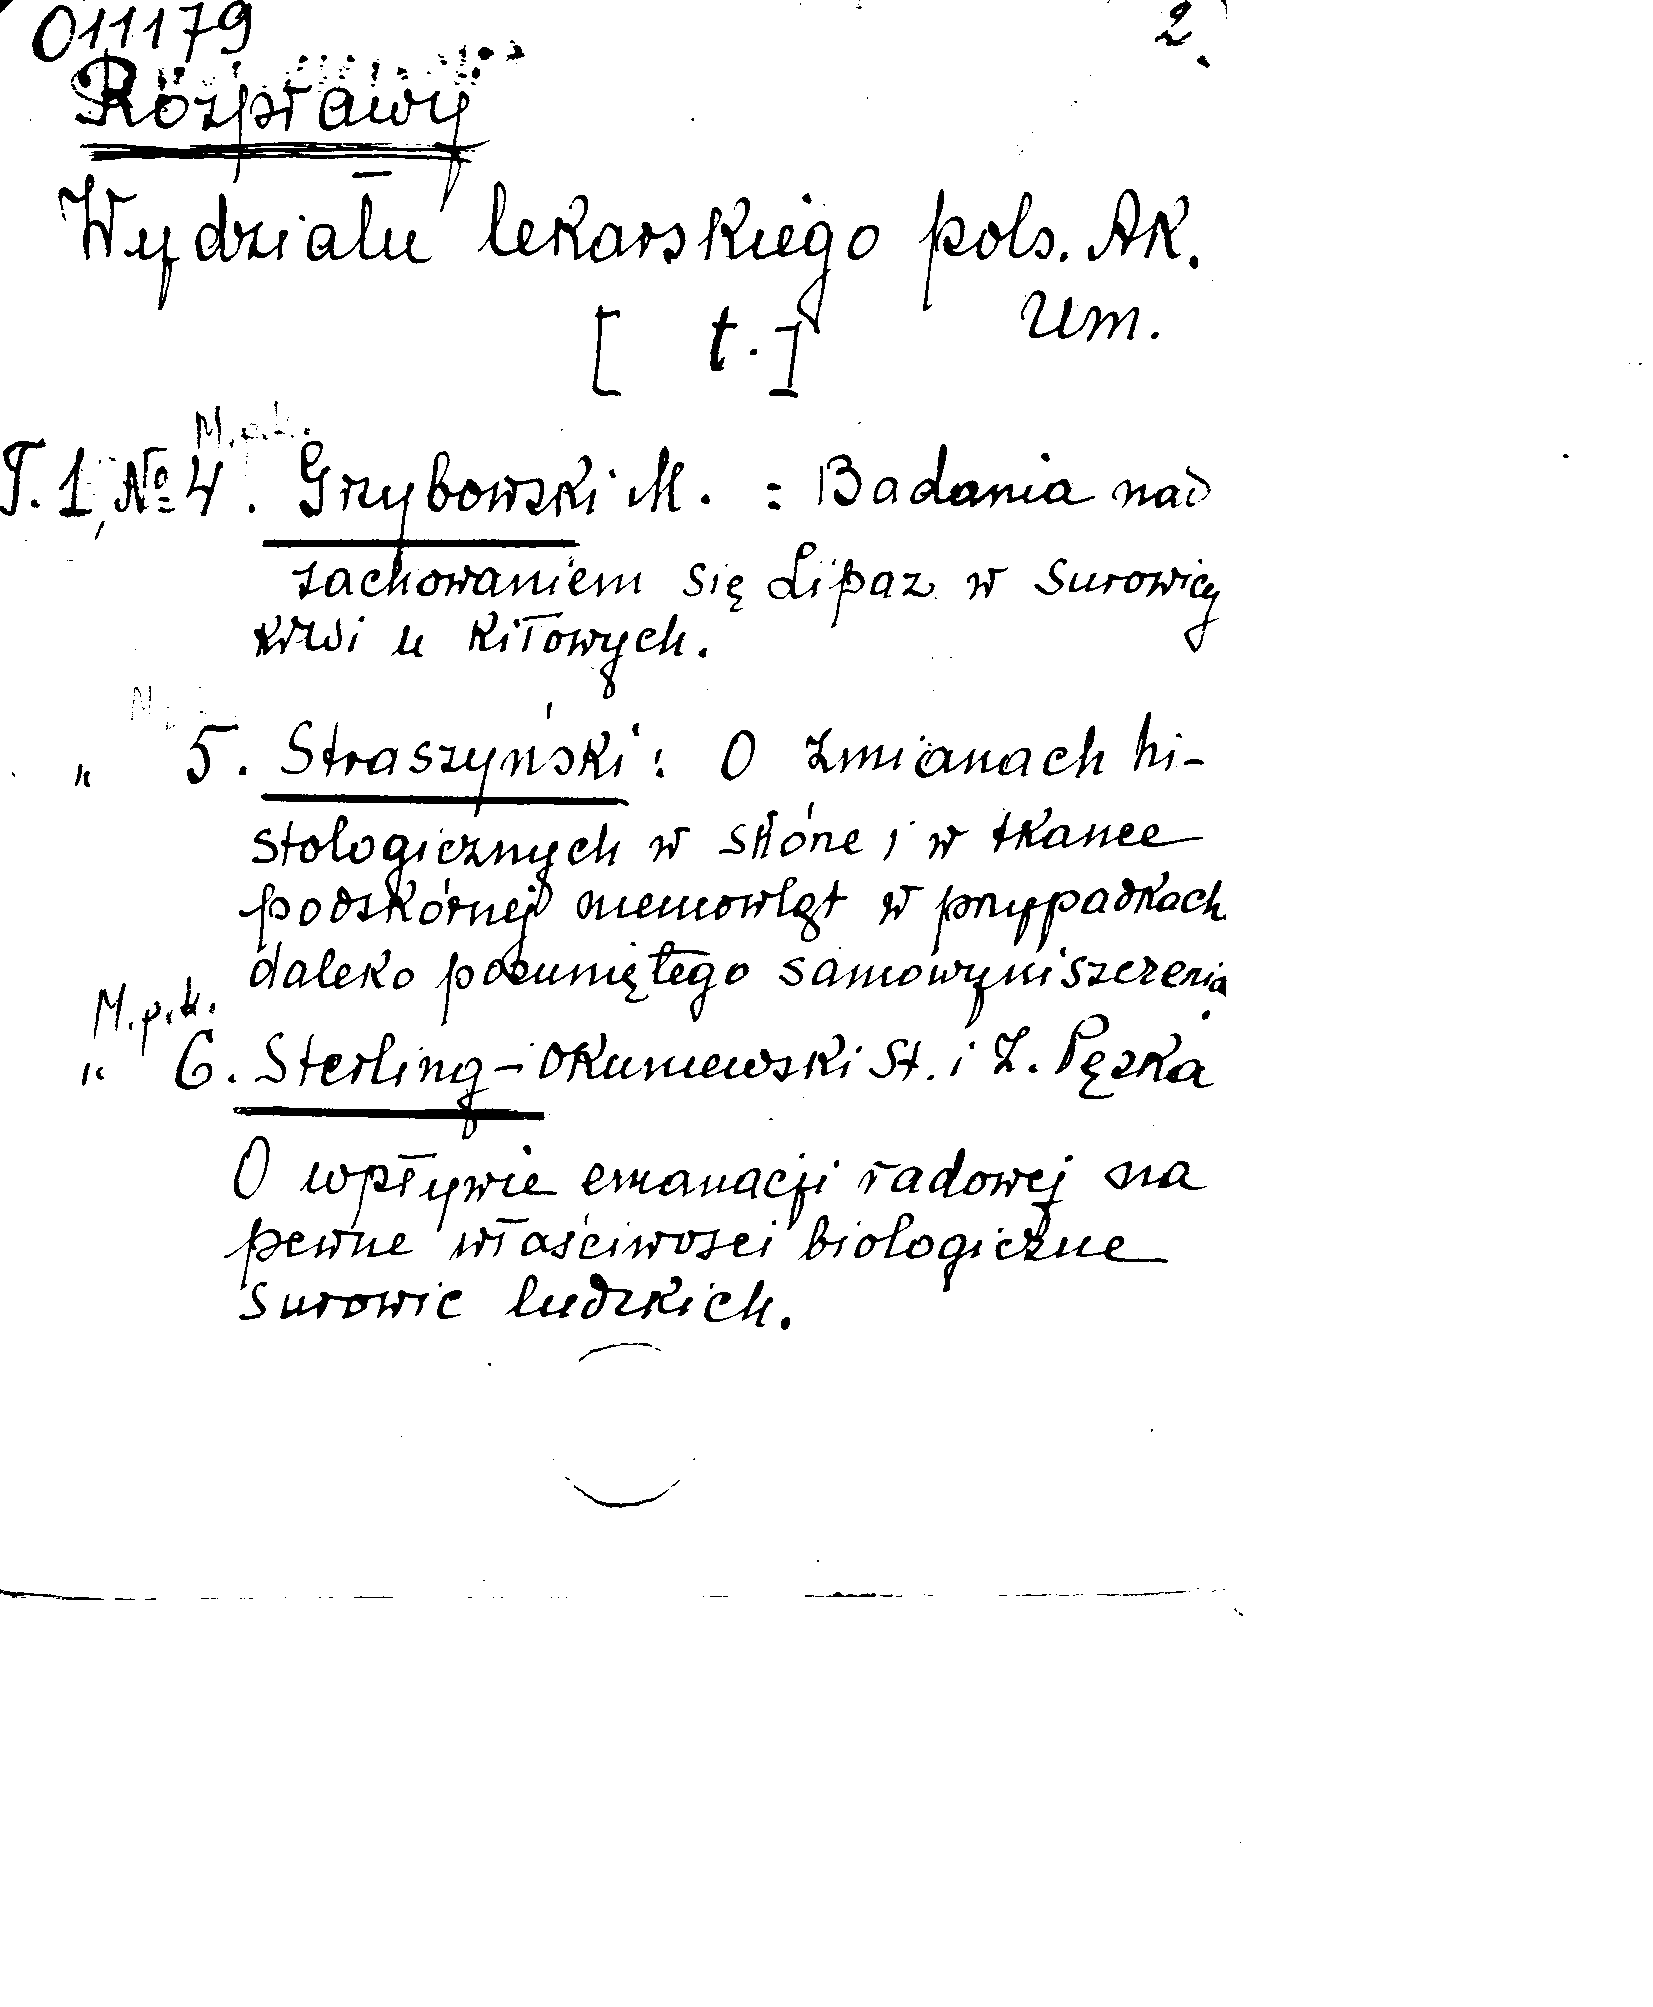 011179
2.
Rozprawy
Wydziału lekarskiego pols. Ak.
Um.
[ t. ]
M.p.k.
T. 1, № 4. Grzybowski M. : Badania nad
zachowaniem się Lipaz w surowicy
krwi u kiłowych.
" 5. Straszyński: O zmianach hi-
stologicznych w skórze i w tkance
podskórnej niemowląt w przypadkach
daleko posuniętego samowyniszczenia.
M.p.k.
" 6. Sterling-Okuniewski St. i Z. Pęska
O wpływie emanacji radowej na
pewne właściwości biologiczne
surowic ludzkich.